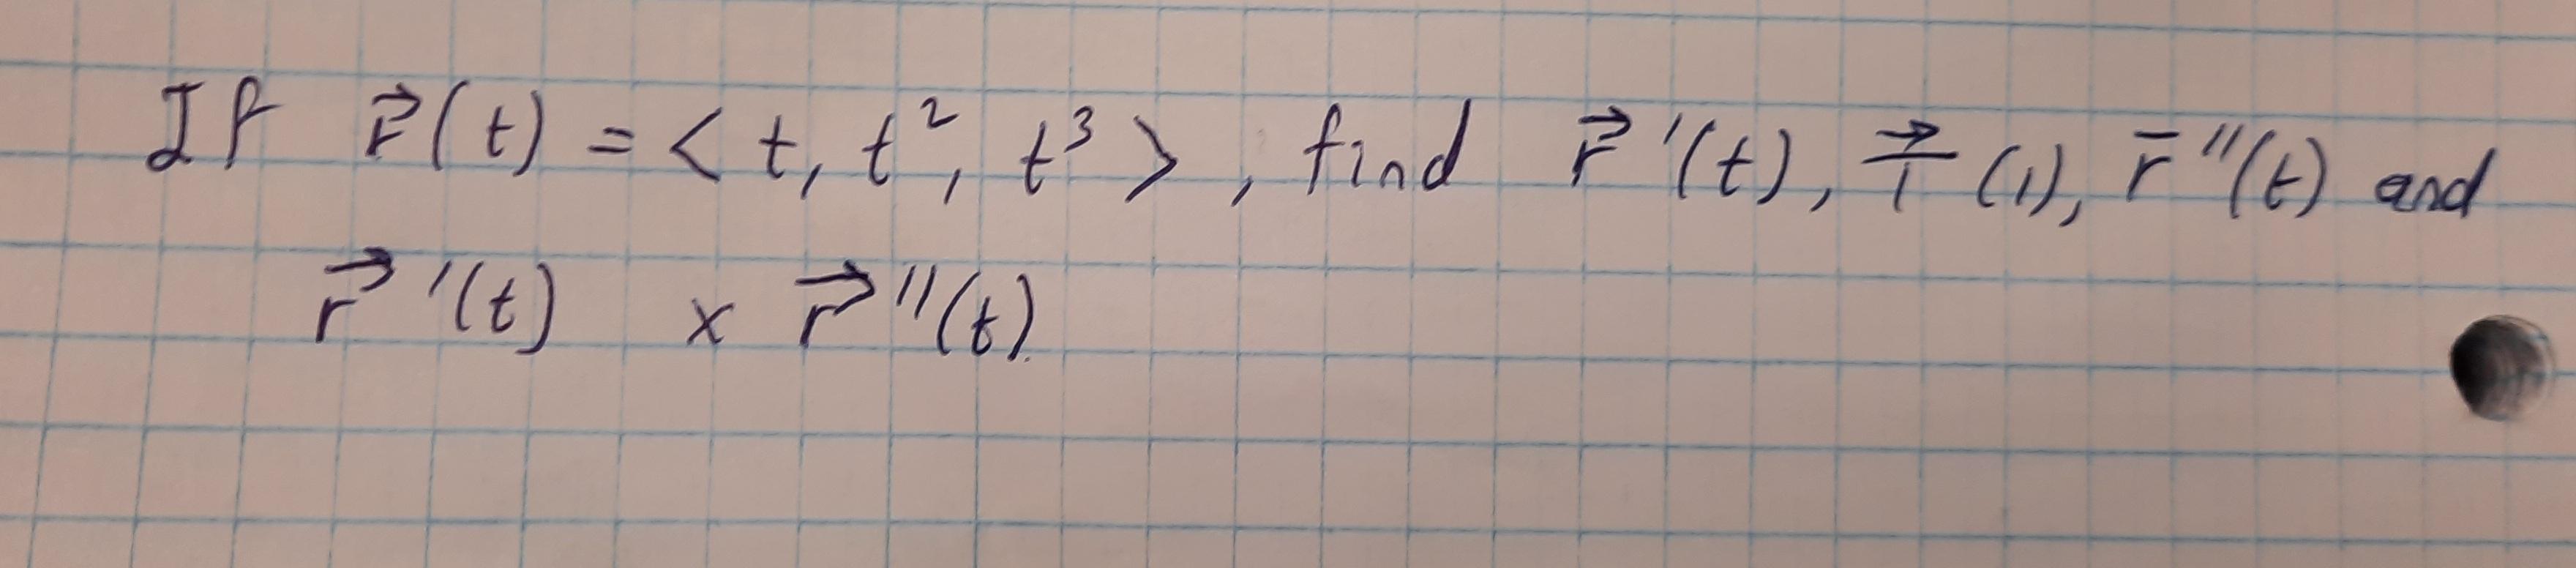 If r⃗(t) = < t, t², t³ >, find r⃗ ′(t), T⃗ (1), r̄ ″(t) and
r⃗ ′(t) × r⃗ ″(t).